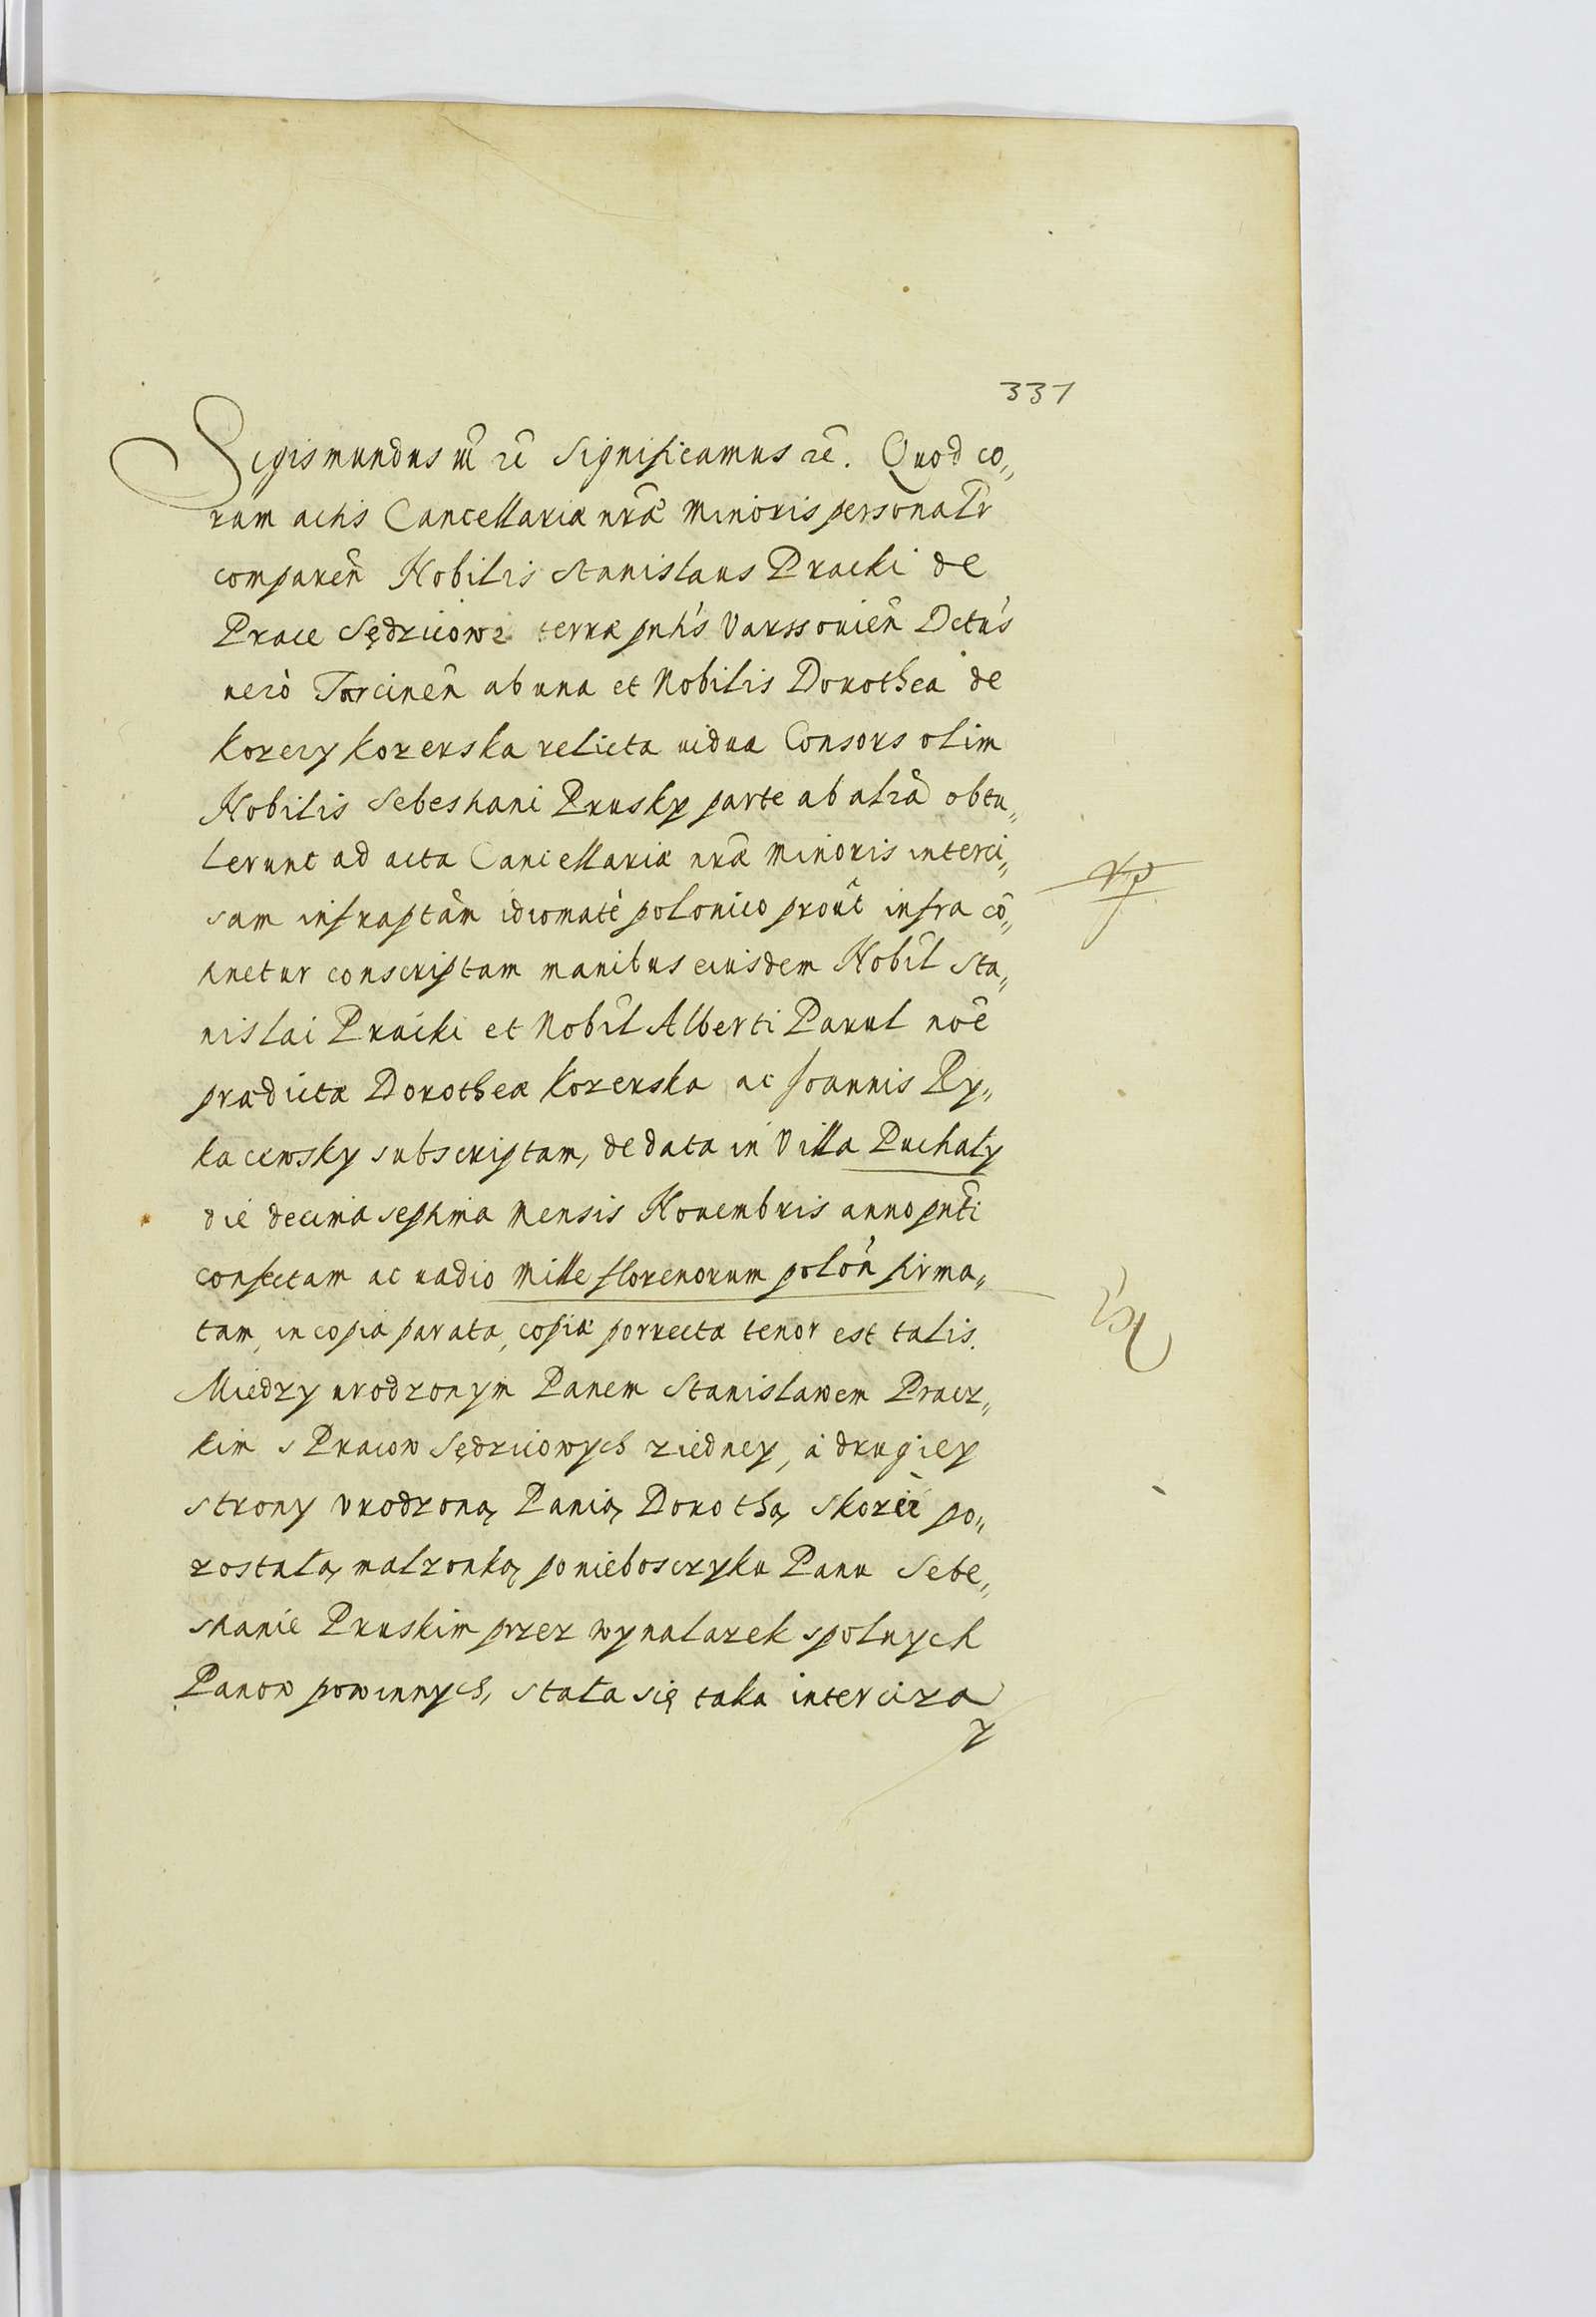 331
Sigismundus III rc̃ Significamus rc̃. Quod co„
ram actis Cancellariæ nr̃æ Minoris personalr̃
comparen̂ Nobilis Stanislaus Pracki de
Prace Sędzicowe terræ puhs Varssouien̂ Dctus
uerò Tarcinen̂ ab una et Nobilis Dorothea de
Korezy Kozerska relicta uidua Consors olim
Nobilis Sebestiani Prusky parte ab al̃ra obtu„
lerunt ad acta Cancellariæ nr̃æ Minoris interci„
sam infraptam̂ idiomate polonico prout̂ infra cõ„
tinetur conscriptam manibus eiusdem Nobil̂ Sta„
nislai Pracki et Nobil̂ Alberti Parul nôe
prædictæ Dorotheæ Kozerska ac Joannis Ry„
kaczewsky subscriptam, de data in Villa Puchały
die decima septima Mensis Nouembris anno pnt̃i
confectam ac uadio Mille florenorum polon̂ firma„
tam, in copia parata, copiæ porrectæ tenor est talis.
Miedzy urodzonym Panem Stanisławem Pracz„
kim s Pracow Sędzicowych ziedney, a drugiey
strony vrodzoną Panią Dorothą Skozie po„
zostałą małzonką po nieboszczyku Panu Sebe„
stianie Pruskim przez wynalazek spolnych
Panow powinnych, stała się taka interciza